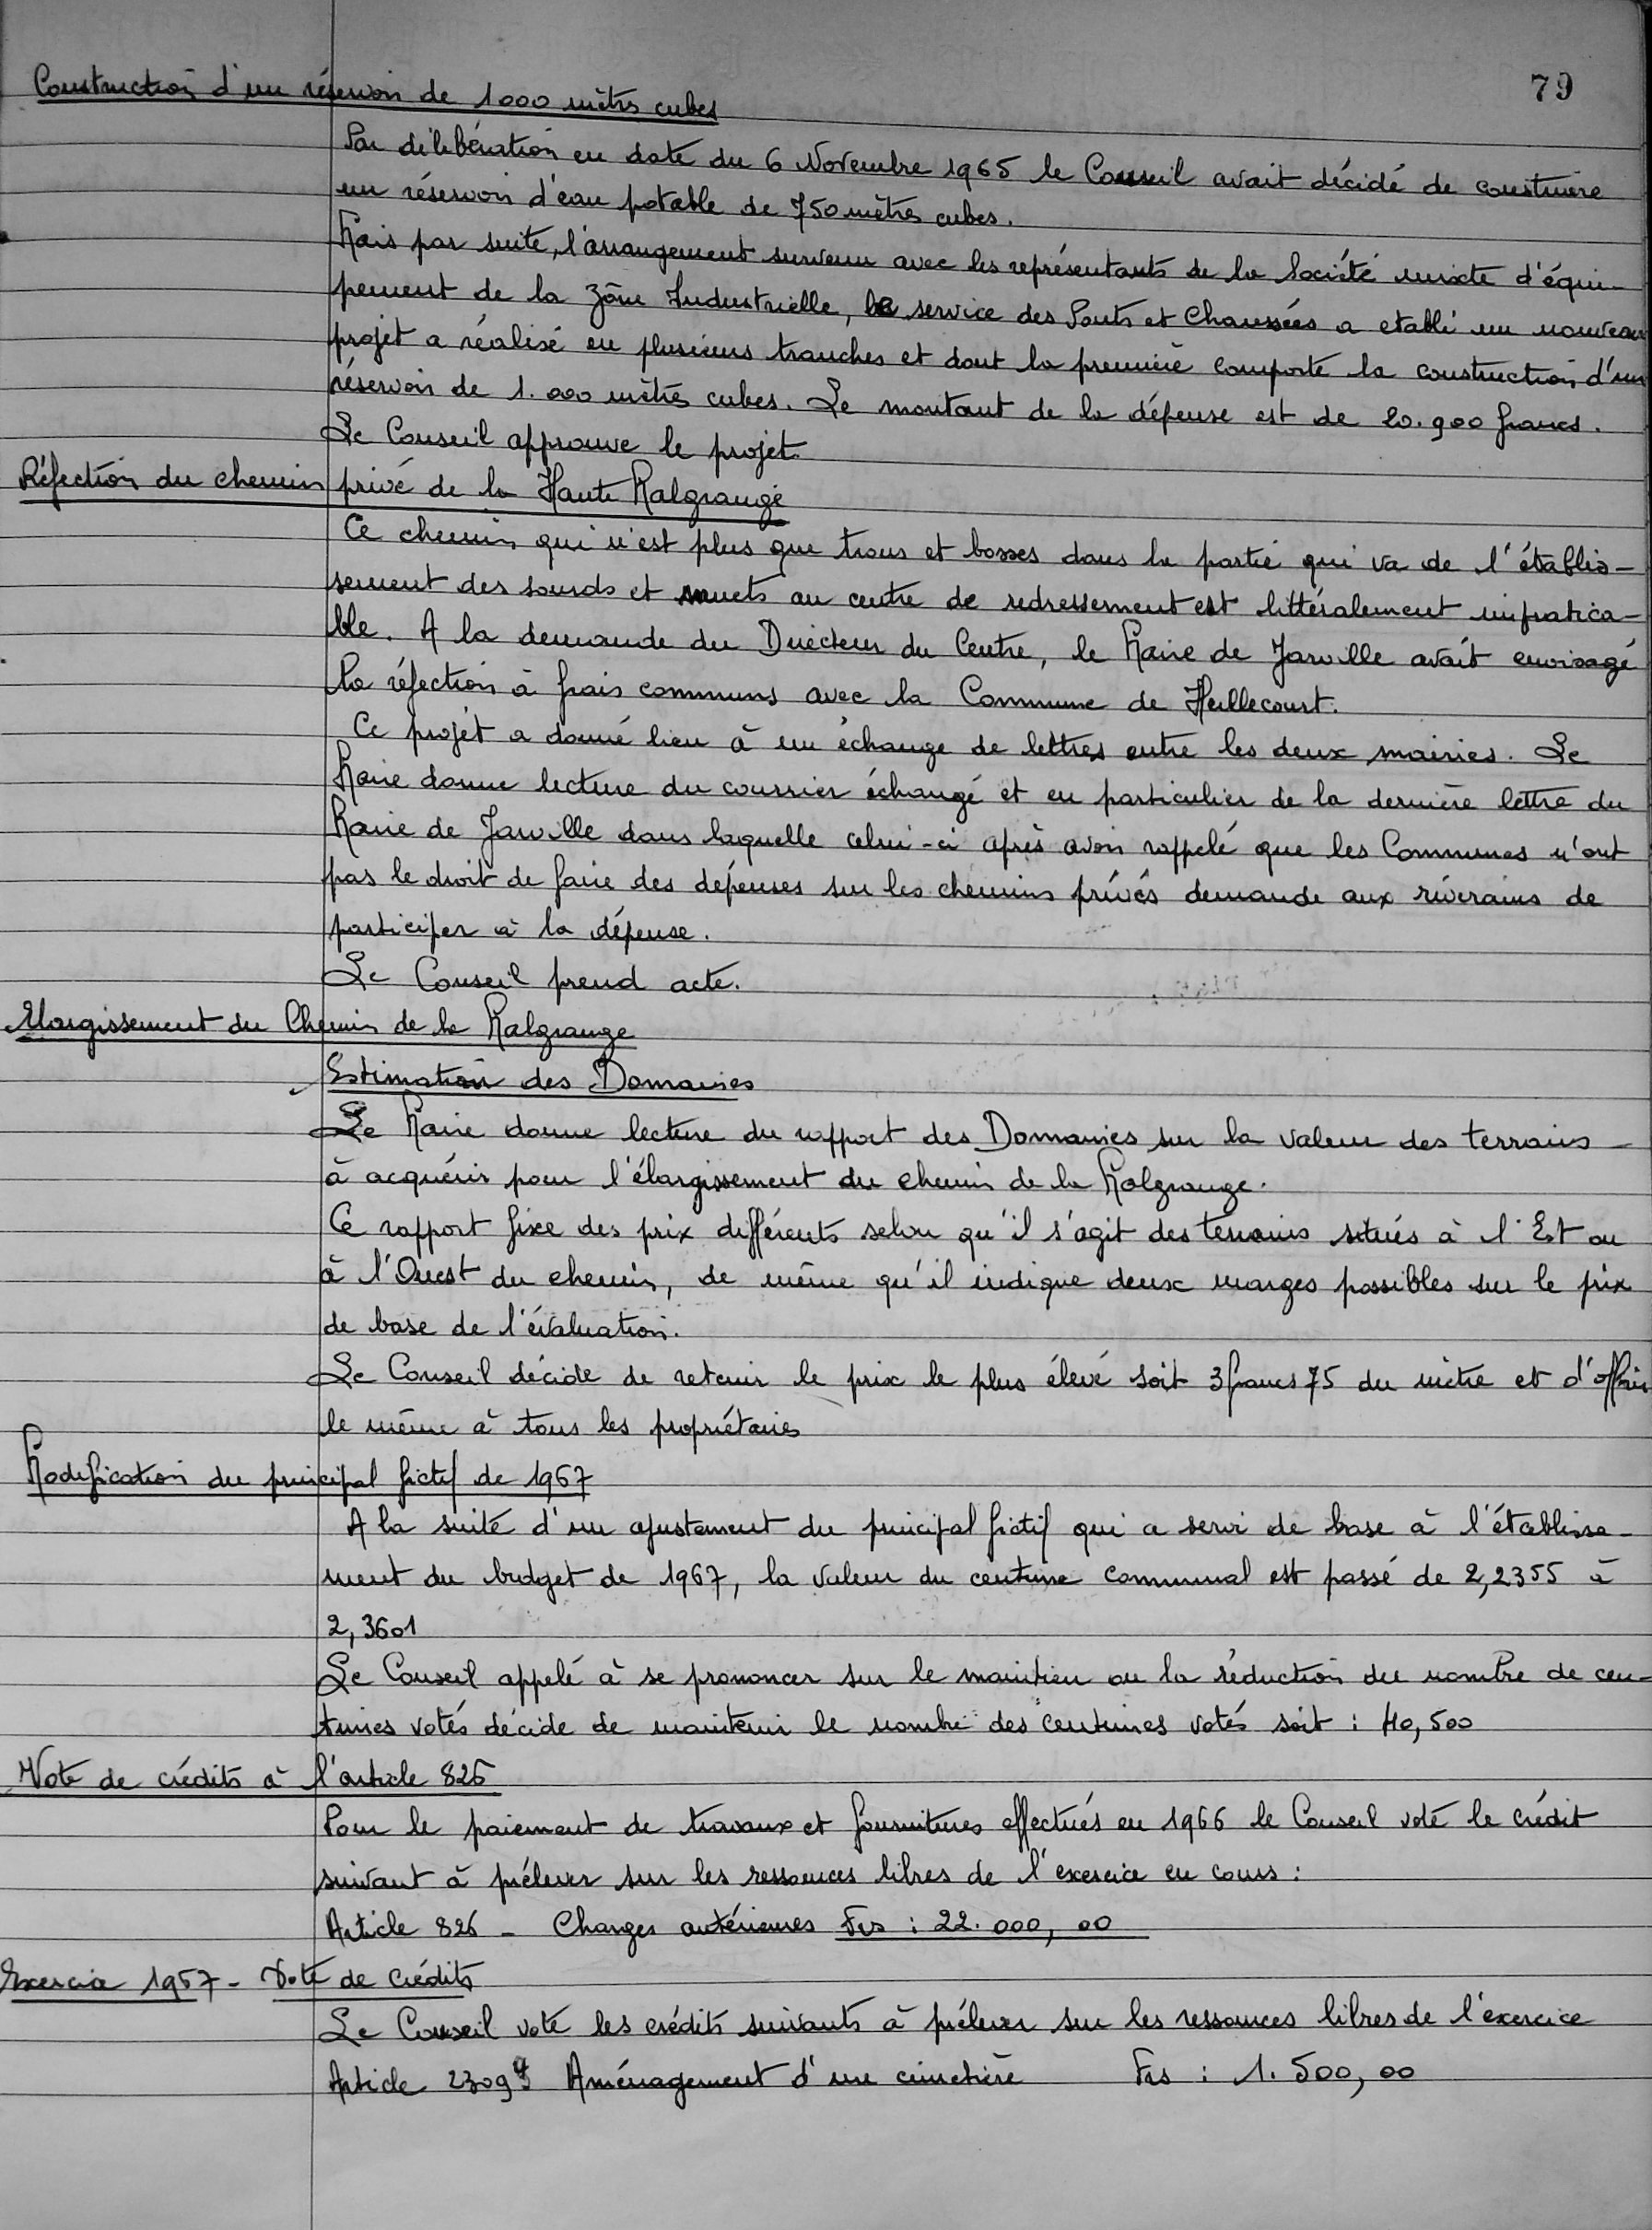 79
Construction d'un réservoir de 1000 mètres cubes
Par délibération en date du 6 Novembre 1965 le Conseil avait décidé de construire
un réservoir d'eau potable de 750 mètres cubes.
Mais par suite, l'arrangement survenu avec les représentants de la Société mixte d'équi-
pement de la Zône Industrielle, le service des Ponts et Chaussées a etabli un nouveau
projet a réalisé en plusieurs tranches et dont la première comporte la construction d'un
réservoir de 1.000 mètres cubes. Le montant de la dépense est de 20.900 francs.
Le Conseil approuve le projet.
Réfection du chemin privé de la Haute Malgrange
Ce chemin qui n'est plus que trous et bosses dans la partie qui va de l'établis-
sement des sourds et muets au centre de redressement est littéralement impratica-
ble. A la demande du Directeur du Centre, le Maire de Jarville avait envisagé
la réfection à frais communs avec la Commune de Heillecourt.
Ce projet a donné lieu à un échange de lettres entre les deux mairies. Le
Maire donne lecture du courrier échangé et en particulier de la dernière lettre du
Maire de Jarville dans laquelle celui-ci après avoir rappelé que les Communes n'ont
pas le droit de faire des dépenses sur les chemins privés demande aux riverains de
participer à la dépense.
Le Conseil prend acte.
Elargissement du Chemin de la Malgrange
Estimation des Domaines
Le Maire donne lecture du rapport des Domaines sur la valeur des terrains
à acquérir pour l'élargissement du chemin de la Malgrange.
Ce rapport fixe des prix différents selon qu'il s'agit des terrains situés à l'Est ou
à l'Ouest du chemin, de même qu'il indique deux marges possibles sur le prix
de base de l'évaluation.
Le Conseil décide de retenir le prix le plus élevé soit 3 francs 75 du mètre et d'offrir
le même à tous les propriétaires
Modification du principal fictif de 1967
A la suite d'un ajustement du principal fictif qui a servi de base à l'établisse-
ment du budget de 1967, la valeur du centime communal est passé de 2,2355 à
2,3601
Le Conseil appelé à se prononcer sur le maintien ou la réduction du nombre de cen-
times votés décide de maintenir le nombre des centimes votés soit : 40,500
Vote de crédits à l'article 826
Pour le paiement de travaux et fournitures effectués en 1966 le Conseil vote le crédit
suivant à prélever sur les ressources libres de l'exercice en cours :
Article 826 - Charges antérieures Frs : 22.000,00
Exercice 1967 - Vote de crédits
Le Conseil vote les crédits suivants à prélever sur les ressources libres de l'exercice
Article 2309 Aménagement d'un cimetière Frs : 1.500,00